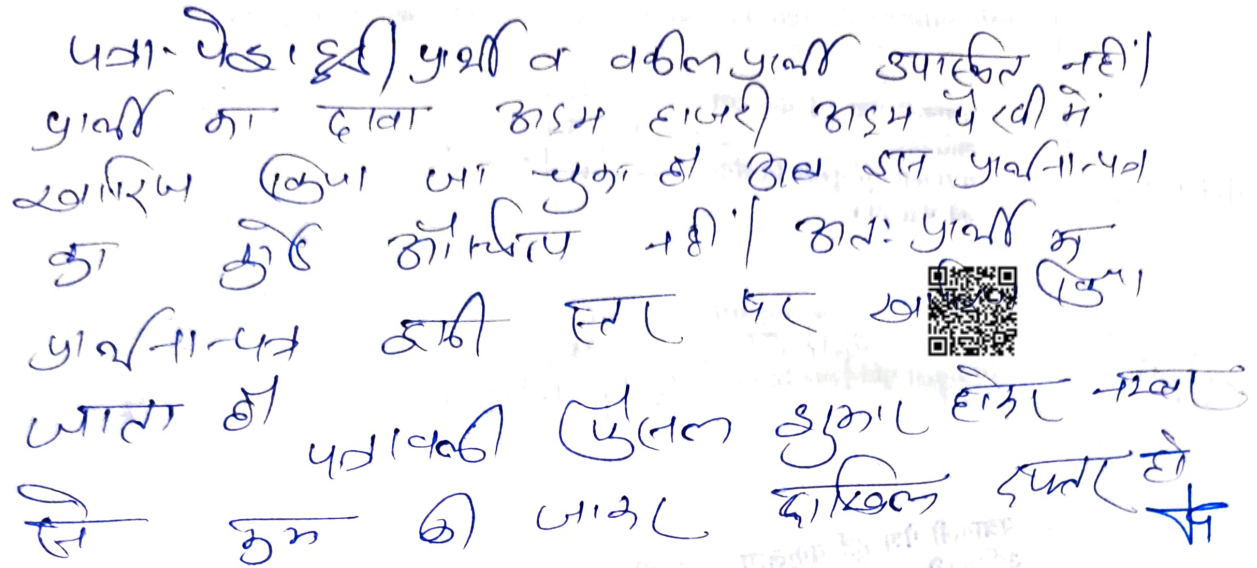 पत्रा- पेश हुई। प्रार्थी व वकील प्रार्थी उपस्थित नहीं।
प्रार्थी का दावा अदम हाजरी अदम पैरवी में
खारिज किया जा चुका है अब इस प्रार्थना-पत्र
का कोई औचित्य नहीं। अतः प्रार्थी का
प्रार्थना-पत्र इसी स्तर पर किया
जाता है पत्रावली फैसल शुमार होकर नम्बर
से कम की जाकर दाखिल दफ्तर हो